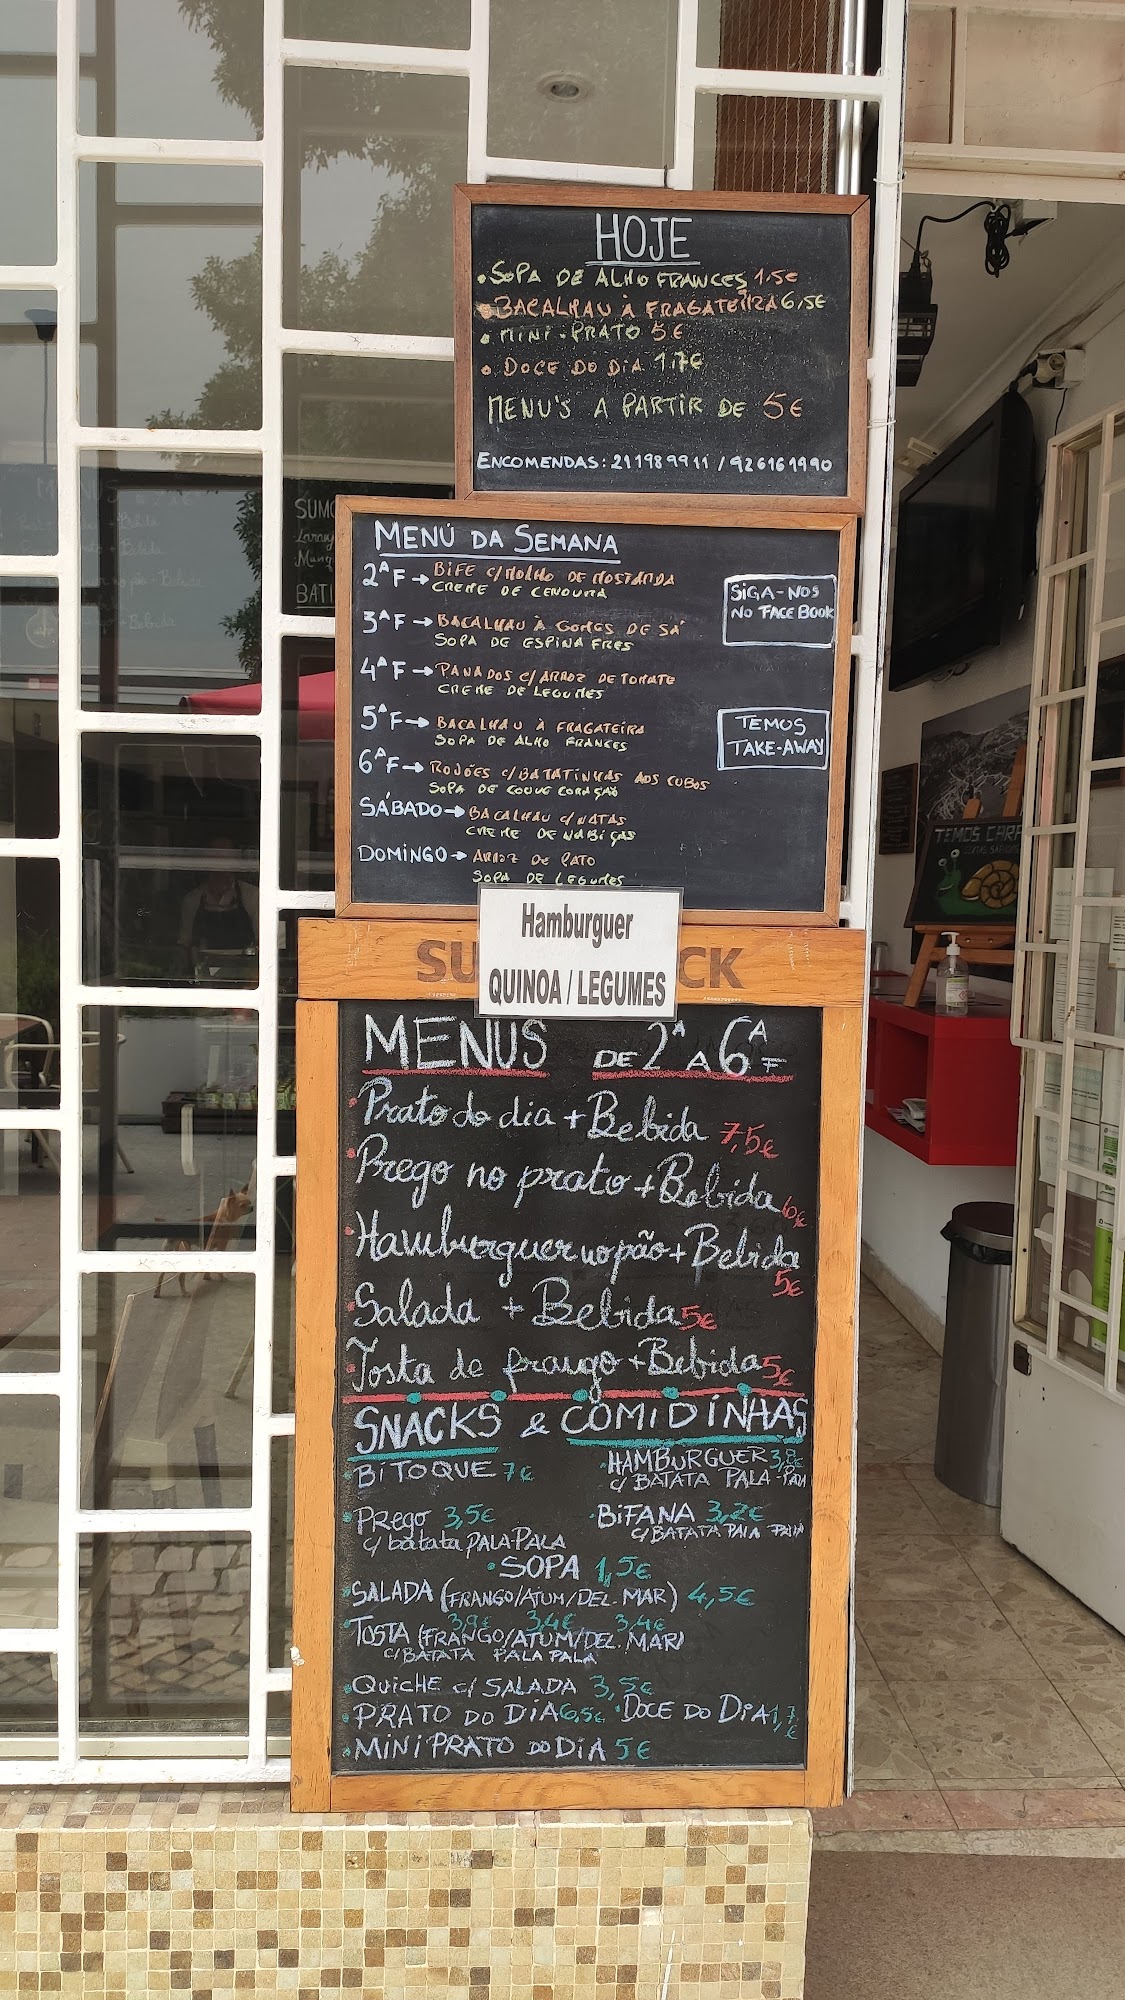 HOJE
• SOPA DE ALHO FRANCES 1.5€
• BACALHAU À FRAGATEIRA 6,5€
• MINI-PRATO 5€
• DOCE DO DIA 1.7€
MENU'S A PARTIR DE 5€
ENCOMENDAS: 211989911 / 926161990
MENÚ DA SEMANA
2ªF → BIFE C/MOLHO DE MOSTARDA
CREME DE CENOURA
3ªF → BACALHAU À GOMES DE SÁ
SOPA DE ESPINAFRES
4ªF → PANADOS C/ARROZ DE TOMATE
CREME DE LEGUMES
5ªF → BACALHAU À FRAGATEIRA
SOPA DE ALHO FRANCES
6ªF → ROJÕES C/BATATINHAS AOS CUBOS
SOPA DE COUVE CORAÇÃO
SÁBADO → BACALHAU C/NATAS
CREME DE NABIÇAS
DOMINGO → ARROZ DE PATO
SOPA DE LEGUMES
SIGA-NOS
NO FACEBOOK
TEMOS
TAKE-AWAY
Hamburguer
QUINOA / LEGUMES
MENUS DE 2ª A 6ª F
• Prato do dia + Bebida 7,5€
• Prego no prato + Bebida 6€
• Hamburguer no pão + Bebida
5€
• Salada + Bebida 5€
• Tosta de frango + Bebida 5€
SNACKS & COMIDINHAS
• BITOQUE 7€
• HAMBURGUER 3,8€
C/ BATATA PALA-PALA
• PREGO 3,5€
C/ batata PALA-PALA
• BIFANA 3,2€
C/BATATA PALA PALA
• SOPA 1,5€
• SALADA (FRANGO/ATUM/DEL. MAR) 4,5€
3,9€ 3,4€ 3,4€
• TOSTA (FRANGO/ATUM/DEL. MAR)
C/BATATA PALA PALA
• QUICHE C/ SALADA 3,5€
• PRATO DO DIA 6,5€ • DOCE DO DIA 1,7€
• MINI PRATO DO DIA 5€
SUMO
BATI
TEMOS CARA